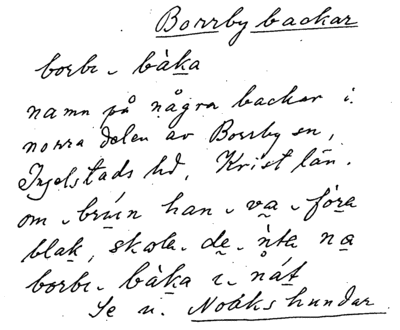 Borrby backar
borbı - bàka
namn på några backar i
norra delen av Borrby sn,
Ingelstads hd, Krist län.
om - brún han - va - fóra
blak, skola - de - ìnta na
borbı - bàka ı - nát
Se u. Noaks hundar